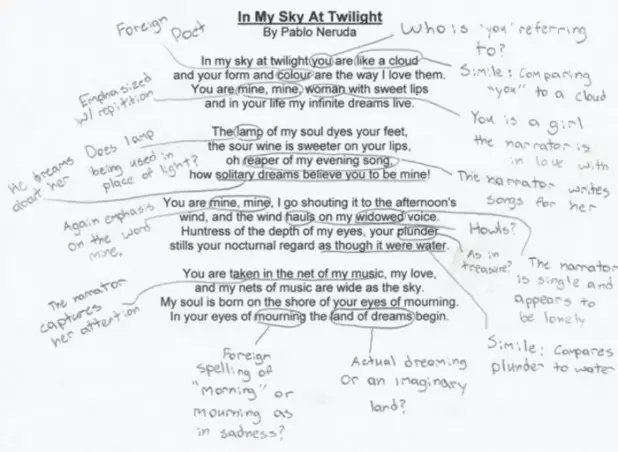 In My Sky At Twilight
By Pablo Neruda
Foreign
Poet
Who is "you" referring
to?
In my sky at twilight you are like a cloud
and your form and colour are the way I love them.
You are mine, mine, woman with sweet lips
and in your life my infinite dreams live.
Simile: Comparing
"you" to a cloud
Emphasized
w/ repitition
You is a girl
the narrator is
in love with
The lamp of my soul dyes your feet,
the sour wine is sweeter on your lips,
oh reaper of my evening song,
how solitary dreams believe you to be mine!
Does lamp
being used in
place of light?
He dreams
about her
The narrator writes
songs for her
You are mine, mine, I go shouting it to the afternoon's
wind, and the wind hauls on my widowed voice.
Huntress of the depth of my eyes, your plunder
stills your nocturnal regard as though it were water.
Again emphasis
on the word
mine.
Howls?
As in
treasure?
The narrator
is single and
appears to
be lonely
You are taken in the net of my music, my love,
and my nets of music are wide as the sky.
My soul is born on the shore of your eyes of mourning.
In your eyes of mourning the land of dreams begin.
The narrator
captures
her attention
Simile: Compares
plunder to water
Foreign
spelling of
"Morning" or
mourning as
in sadness?
Actual dreaming
or an imaginary
land?